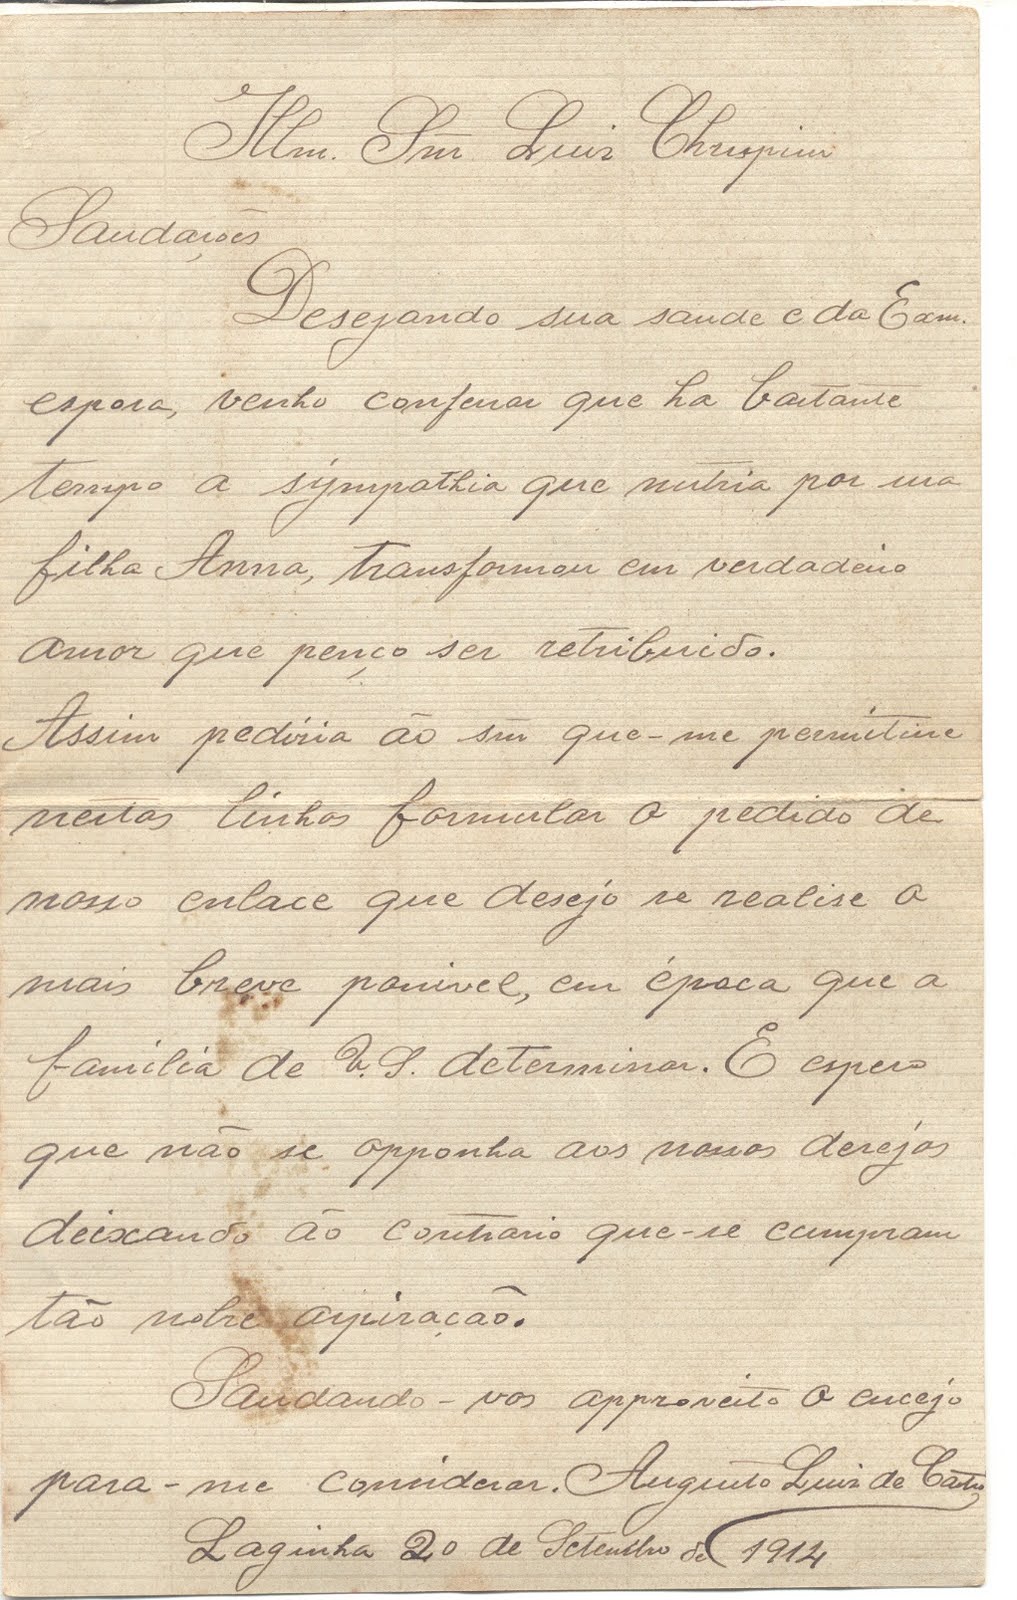 Illm. Snr Luiz Chrispim
Saudações
Desejando sua saude e da Exm.
espoza, venho confessar que ha bastante
tempo a sÿmpathia que nutria por sua
filha Anna, transformou em verdadeiro
amor que penço ser retribuido.
Assim pediria ão snr que-me permitisse
nestas linhas formular o pedido de
nosso enlace que desejo se realise o
mais breve possivel, em época que a
familia de V.S. determinar. E espero
que não se opponha aos nossos desejos
deixando ão contrario que-se cumpram
tão nobre aspiração.
Saudando-vos approveito o encejo
para-me considerar. Augusto Luiz de Castro
Laginha 20 de Setembro de 1914